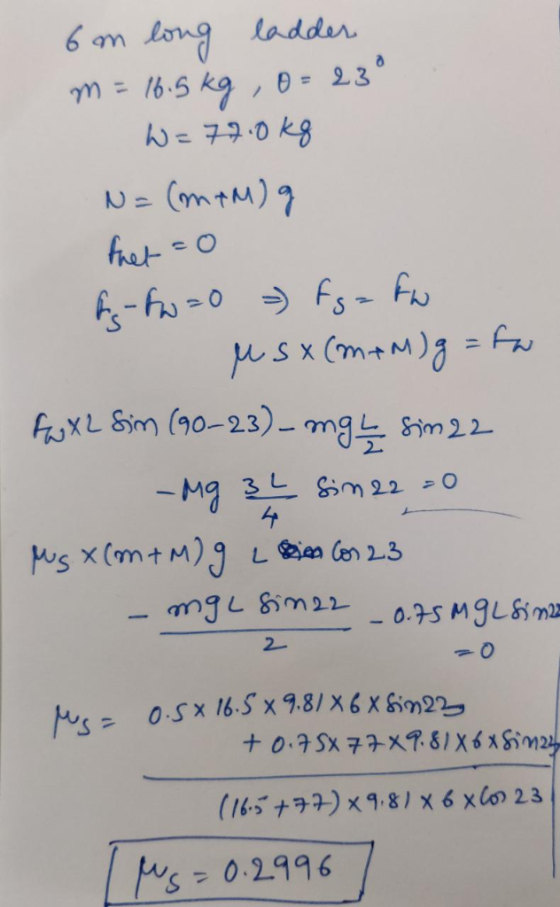 6 m long ladder
m = 16.5 kg, θ = 23°
W = 77.0 kg
N = (m+M) g
fnet = 0
fs - fw = 0 ⇒ fs = fw
μ s × (m+M) g = fw
fw × L Sin (90-23) - mg L/2 Sin 22
- Mg 3L/4 Sin 22 = 0
μs × (m+M) g L Cos 23
- mgL Sin 22 / 2 - 0.75 MgL Sin 22
= 0
μs = 0.5 × 16.5 × 9.81 × 6 × Sin 23
+ 0.75 × 77 × 9.81 × 6 × Sin 23
(16.5 + 77) × 9.81 × 6 × Cos 23
μs = 0.2996